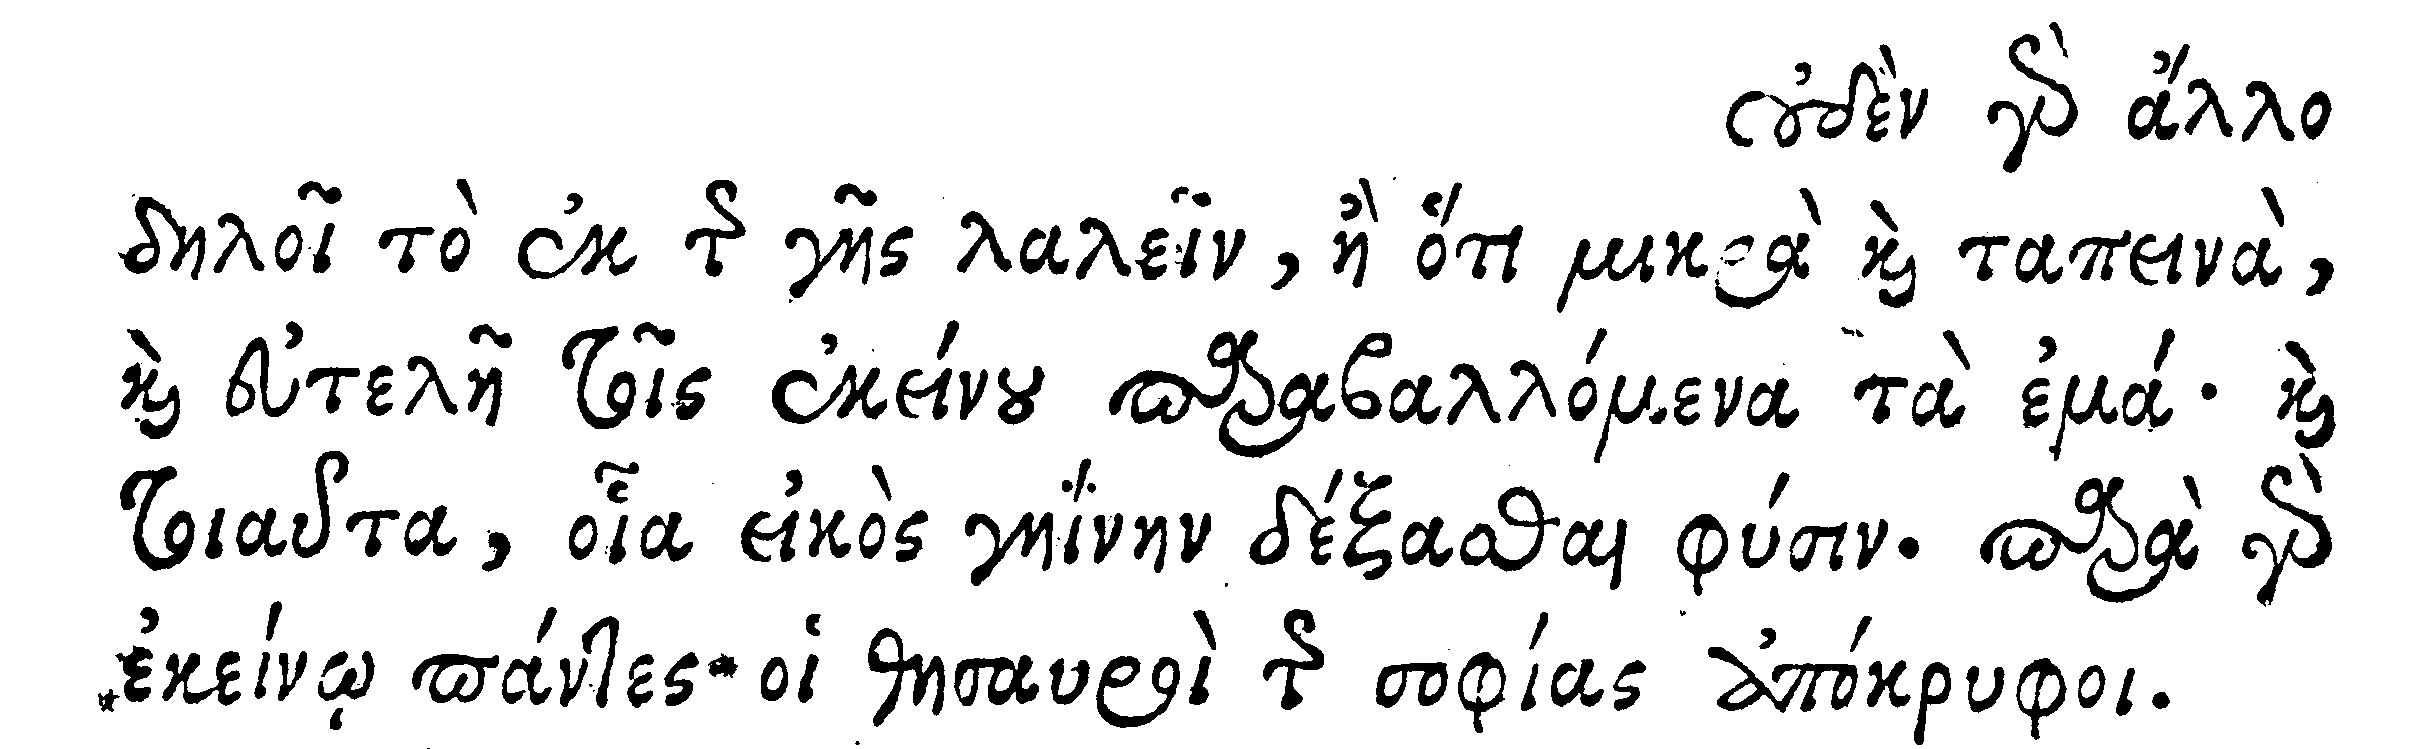 οὐδὲν γὰρ ἄλλο
δηλοῖ τὸ ἐκ τῆς γῆς λαλεῖν, ἢ ὅτι μικρὰ καὶ ταπεινὰ,
καὶ εὐτελῆ τοῖς ἐκείνου παραβαλλόμενα τὰ ἐμά· καὶ
τοιαῦτα, οἷα εἰκὸς γηΐνην δέξασθαι φύσιν. παρὰ γὰρ
ἐκείνῳ πάντες οἱ θησαυροὶ τῆς σοφίας ἀπόκρυφοι.